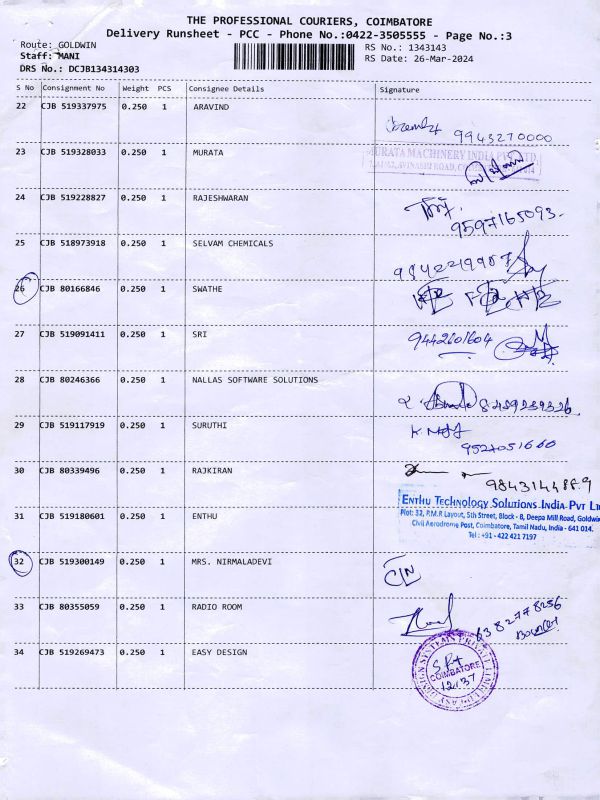 THE PROFESSIONAL COURIERS, COIMBATORE
Delivery Runsheet - PCC - Phone No.:0422-3505555 - Page No.:3
Route: GOLDWIN
RS No.: 1343143
Staff: MANI
RS Date: 26-Mar-2024
DRS No.: DCJB134314303
S No Consignment No Weight PCS Consignee Details Signature
22 CJB 519337975 0.250 1 ARAVIND
9943270000
23 CJB 519328033 0.250 1 MURATA
MURATA MACHINERY INDIA PVT. LTD.
AVINASHI ROAD,
24 CJB 519228827 0.250 1 RAJESHWARAN
9597165093.
25 CJB 518973918 0.250 1 SELVAM CHEMICALS
9842219987
26 CJB 80166846 0.250 1 SWATHE
27 CJB 519091411 0.250 1 SRI
9442601604
28 CJB 80246366 0.250 1 NALLAS SOFTWARE SOLUTIONS
8489239326
29 CJB 519117919 0.250 1 SURUTHI
9527051660
30 CJB 80339496 0.250 1 RAJKIRAN
31 CJB 519180601 0.250 1 ENTHU
ENTHU TECHNOLOGY SOLUTIONS INDIA PVT LT
Plot: 32, P.M.R Layout, 5th Street, Block - 8, Deepa Mill Road, Goldwin
Civil Aerodrome Post, Coimbatore, Tamil Nadu, India - 641 014.
Tel : +91 - 422 421 7197
32 CJB 519300149 0.250 1 MRS. NIRMALADEVI
33 CJB 80355059 0.250 1 RADIO ROOM
6382778256
34 CJB 519269473 0.250 1 EASY DESIGN
EASY DESIGN SYSTEMS PRIVATE LIMITED
COIMBATORE
12:37